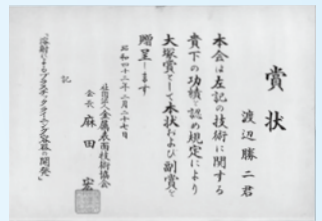 賞状
渡辺勝二君
本会は左記の技術に関する
貴下の功績を認め規定により
大塚賞として本状および副賞を
贈呈します
昭和四十三年二月二十七日
社団法人金属表面技術協会
会長 麻田 宏
記
「溶射によるプラスチックライニング技術の開発」